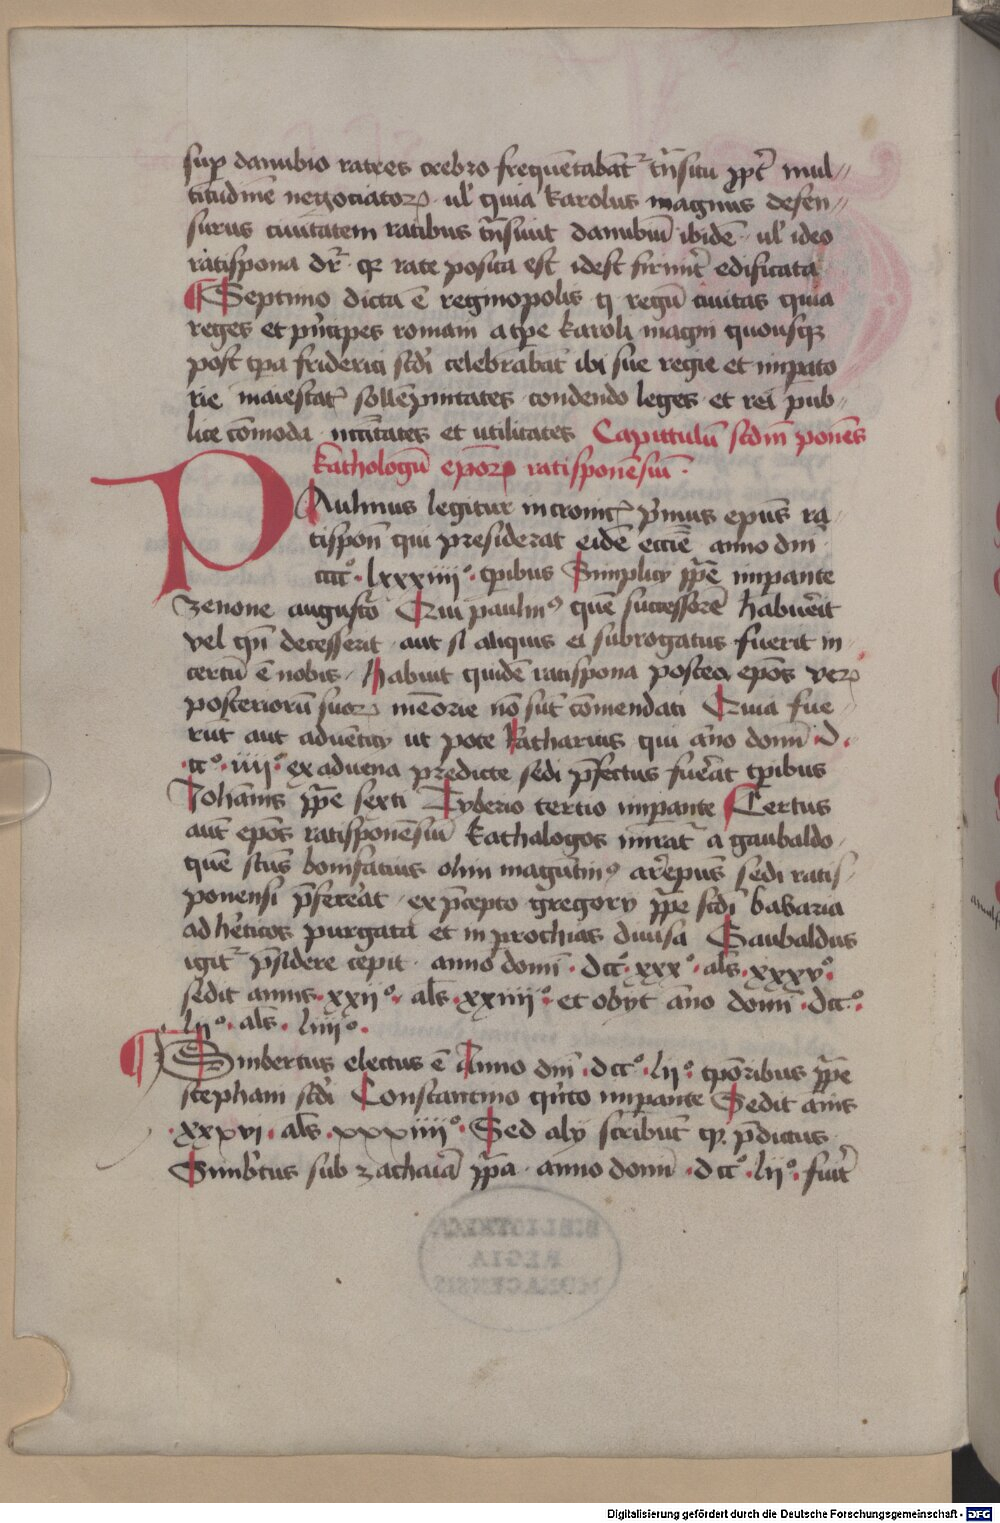 sup danubio ratres crebro frequẽtabãt᷑ trͣsitu ꝓpt᷑ mul//
titudinẽ negociatoꝝ · ul᷑ quia karolus magnus defen//
surus ciuitatem ratibus trͣsiuit danubiũ ibidẽ · ul᷑ ideo
ratispona dr̃ · qꝫ rate posita est idest firmit᷑ edificata
¶ Septimo dicta ẽ reginopolis · q̃ regũ ciuitas quia
reges et pͥncipes romani a tpẽ karoli magni quousqꝫ
post tpa friderici scdi celebrabãt ibi sue regie et impato
rie maiestat᷑ sollẽpnitates · condendo leges · et rei pub//
lice cõmoda · nccitates et utilitates Capitulũ scdm ponẽs
kathologũ epõꝝ ratisponẽsiũ ·
PAulinus legitur in cronic᷑ pͥmus epũs ra
tisponñ qui presiderat eidẽ eccĩe anno dñi ·
cccc° · lxxxiiii° · tpibus Simplicij ppẽ impante
zenone augusto Qui paulin⁹ quẽ successorẽ habuerit
vel qñ decesserit · aut si aliquis ei subrogatus fuerit in
certũ ẽ nobis · habuit quidẽ ratispona postea epõs veꝝ
posteriorũ suoꝝ mẽorie nõ sũt cõmendati Quia fue
rũt aut aduẽticij ut pote katharius qui ãno domĩ · d ·
· cc° · iiii° · ex aduena predicte sedi p̃fectus fuerat tpibus
Iohanis ppẽ sexti Tyberio tertio impante Certus
aut epõs ratisponẽsiũ kathalogos inirat᷑ a gaubaldo ·
quẽ scũs bonifatius olim magũtin⁹ arͨepũs sedi ratis
ponensi p̃fecerat · ex p̃cepto gregorij ppẽ scdi babaria
ad hẽticos purgata et in prochias diuisa Gaubaldus
igit᷑ p̃sidere cepit · anno domĩ · dcc° · xxx° · al̃s · xxxv° ·
sedit annis · xxii° · al̃s · xxiiii° · et obijt ãno domĩ · dcc° ·
lii° · al̃s · liiii° ·
¶ Simbertus electus ẽ Anno dñi · dcc° · lii° · tpõribus ppẽ
stephani scdi Constantino qͥnto impante Sedit ãnis
· xxxvi · al̃s · xxxiiii° · Sed alij scribũt qꝫ p̃dictus ·
Simb᷑tus sub zachariã ppa · anno domĩ · dcc° · lii° · fuit᷑
BIBLIOTHECA
REGIA
MONACENSIS
Digitalisierung gefördert durch die Deutsche Forschungsgemeinschaft - DFG